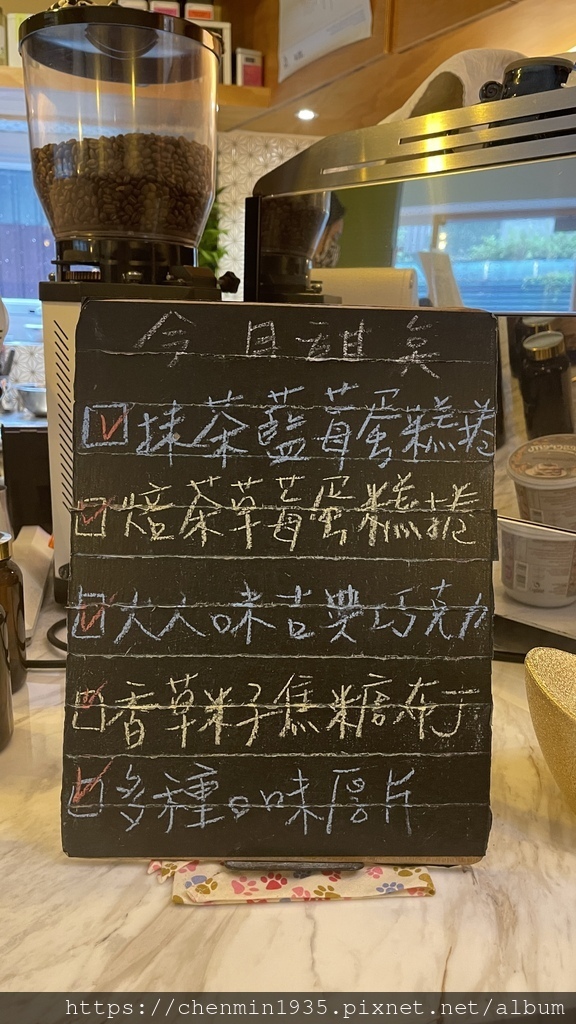 今日甜美
抹茶藍莓蛋糕捲
焙茶草莓蛋糕捲
大人味古典巧克力
香草籽焦糖布丁
多種口味厚片
https://chenmin1935.pixnet.net/album